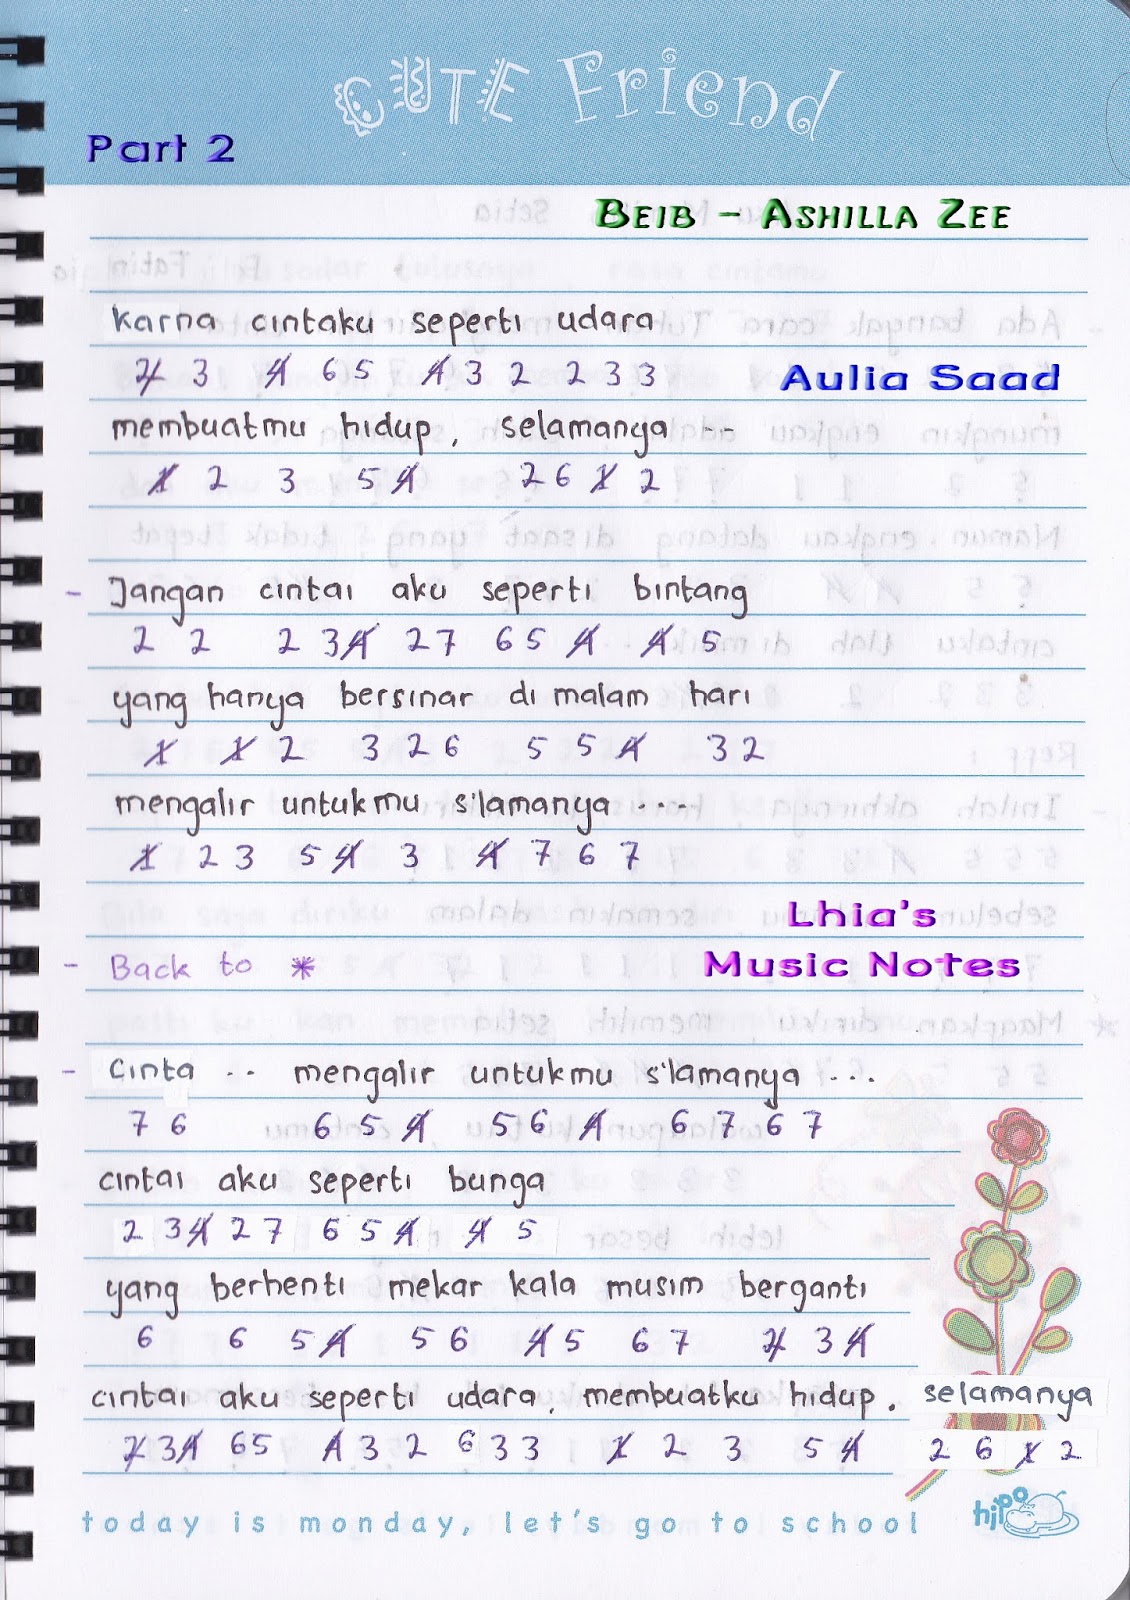 CUTE Friend
Part 2
BEIB - ASHILLA ZEE
Karna cintaku seperti udara
2̸ 3 4̸ 6 5 4̸ 3 2 2 3 3
Aulia Saad
membuatmu hidup, selamanya ..
1̸ 2 3 5 4̸ 2 6 1̸ 2
- Jangan cintai aku seperti bintang
2 2 2 3 4̸ 2 7 6 5 4̸ 4̸ 5
yang hanya bersinar di malam hari
1̸ 1̸ 2 3 2 6 5 5 4̸ 3 2
mengalir untukmu s'lamanya ....
1̸ 2 3 5 4̸ 3 4̸ 7 6 7
Lhia's
- Back to *
Music Notes
- Cinta .. mengalir untukmu s'lamanya ...
7 6 6 5 4̸ 5 6 4̸ 6 7 6 7
cintai aku seperti bunga
2 3 4̸ 2 7 6 5 4̸ 4̸ 5
yang berhenti mekar kala musim berganti
6 6 5 4̸ 5 6 4̸ 5 6 7 2̸ 3 4̸
cintai aku seperti udara, membuatku hidup. selamanya
2̸ 3 4̸ 6 5 4̸ 3 2 6 3 3 1̸ 2 3 5 4̸ 2 6 1̸ 2
today is monday, let's go to school
hipo